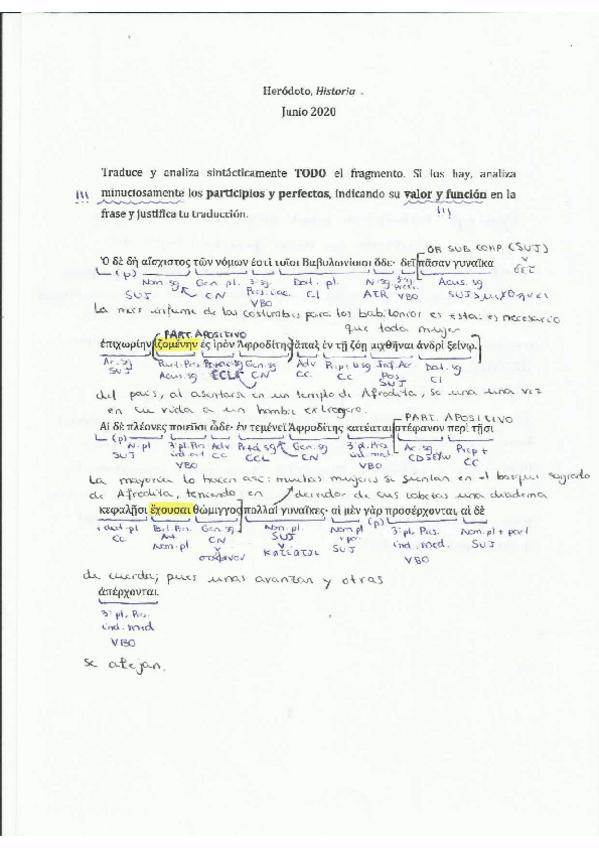 Heródoto, Historia
Junio 2020
Traduce y analiza sintácticamente TODO el fragmento. Si los hay, analiza
!!! minuciosamente los participios y perfectos, indicando su valor y función en la
frase y justifica tu traducción. !!!
OR SUB COMP (SUJ)
Ὁ δὲ δὴ αἴσχιστος τῶν νόμων ἐστὶ τοῖσι Βαβυλωνίοισι ὅδε· δεῖ πᾶσαν γυναῖκα
(p) Nom. sg Gen. pl. 3ª sg Dat. pl. N. sg 3ª sg Acus. sg
SUJ CN VBO CI ATR VBO SUJ
La más infame de las costumbres para los babilonios es esta: es necesario
que toda mujer
PART. APOSITIVO
ἐπιχωρίην ἱζομένην ἐς ἱρὸν Ἀφροδίτης ἅπαξ ἐν τῇ ζόῃ μιχθῆναι ἀνδρὶ ξείνῳ.
Ac. sg Gen. sg Adv Dat. sg
SUJ Acus. sg CCL CN CC CC SUJ CI
del país, al sentarse en un templo de Afrodita, se una una vez
en su vida a un hombre extranjero.
PART. APOSITIVO
Αἱ δὲ πλεῦνες ποιεῦσι ὧδε· ἐν τεμένεϊ Ἀφροδίτης κατέαται στέφανον περὶ τῇσι
(p) N. pl 3ª pl. Pres Adv Gen. sg 3ª pl. Pres Ac. sg Prep +
SUJ VBO CC CCL CN VBO CD CC
La mayoría lo hacen así: muchas mujeres se sientan en el bosque sagrado
de Afrodita, teniendo en derredor de sus cabezas una diadema
κεφαλῇσι ἔχουσαι θώμιγγος πολλαὶ γυναῖκες· αἱ μὲν γὰρ προσέρχονται, αἱ δὲ
+ dat. pl Gen. sg Nom. pl. Nom. pl (p) 3ª pl. Pres. Nom. pl + part
CC Nom. pl CN SUJ SUJ ind. med. SUJ
στέφανον κατέαται VBO
de cuerda; pues unas avanzan y otras
ἀπέρχονται.
3ª pl. Pres.
ind. med
VBO
se alejan.